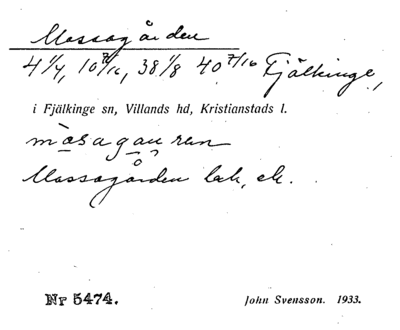 Mossagården
4 1/4, 10 7/16, 38 1/8 40 7/16 Fjälkinge,
i Fjälkinge sn, Villands hd, Kristianstads l.
Mossagården
Nr 5474. John Svensson. 1933.